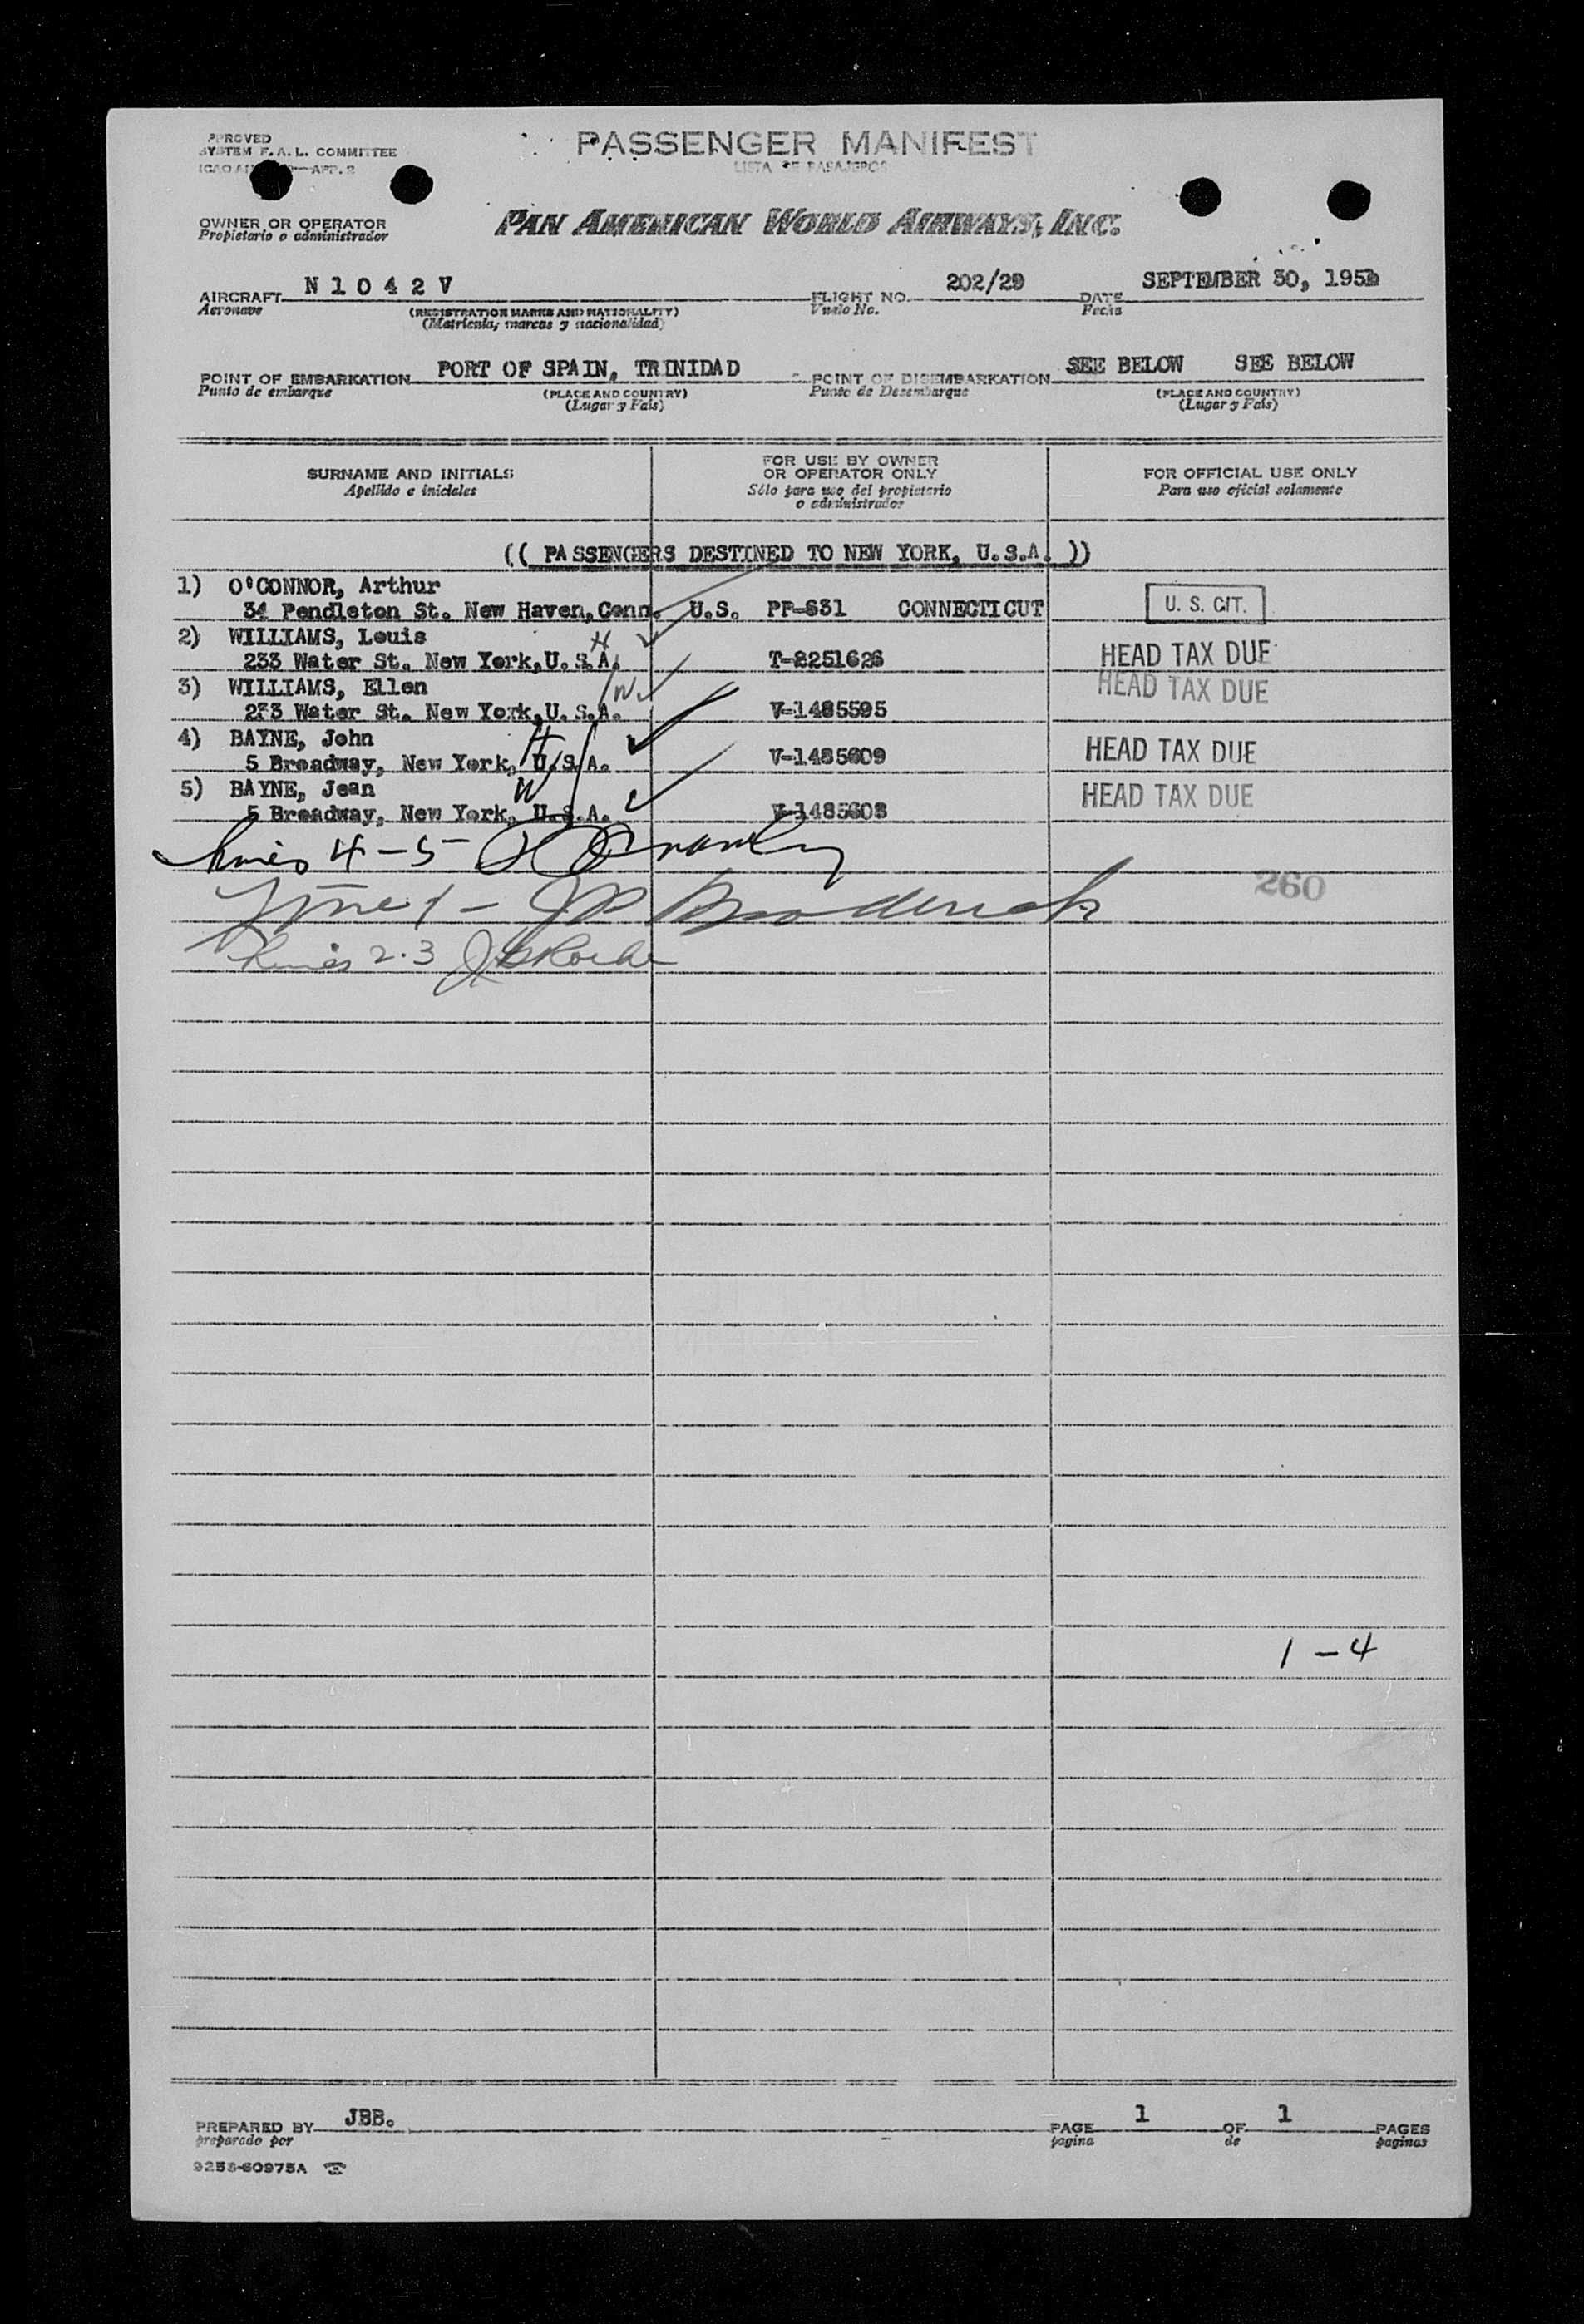 PROVED
SYSTEM F.A.L. COMMITTEE
APP. 2
PASSENGER MANIFEST
LISTA DE PASAJEROS
OWNER OR OPERATOR
Propietario o administrador
PAN AMERICAN WORLD AIRWAYS, INC.
AIRCRAFT N 1 0 4 2 V FLIGHT NO. 202/29 DATE SEPTEMBER 30,
Aeronave (REGISTRATION MARKS AND NATIONALITY) Vuelo No. Fecha
(Matricula, marcas y nacionalidad)
POINT OF EMBARKATION PORT OF SPAIN, TRINIDAD POINT OF DISEMBARKATION SEE BELOW SEE BELOW
Punto de embarque (PLACE AND COUNTRY) Punto de Desembarque (PLACE AND COUNTRY)
(Lugar y País) (Lugar y País)
SURNAME AND INITIALS
Apellido e iniciales
FOR USE BY OWNER
OR OPERATOR ONLY
Sólo para uso del propietario
o administrador
FOR OFFICIAL USE ONLY
Para uso oficial solamente
(( PASSENGERS DESTINED TO NEW YORK, U.S.A. ))
1) O'CONNOR, Arthur
34 Pendleton St. New Haven, Conn. U.S. PP-631 CONNECTICUT U. S. CIT.
2) WILLIAMS, Louis H
233 Water St. New York, U.S.A. T-2251626 HEAD TAX DUE
3) WILLIAMS, Ellen W HEAD TAX DUE
233 Water St. New York, U.S.A. V-1485595
4) BAYNE, John H HEAD TAX DUE
5 Broadway, New York, U.S.A. V-1485609
5) BAYNE, Jean W HEAD TAX DUE
5 Broadway, New York, U.S.A. V-1485608
Lines 4-5
Line 1 - JP Broderick 260
Lines 2.3
1 - 4
PREPARED BY JBB. PAGE 1 OF 1 PAGES
preparado por pagina de paginas
9253-60975A